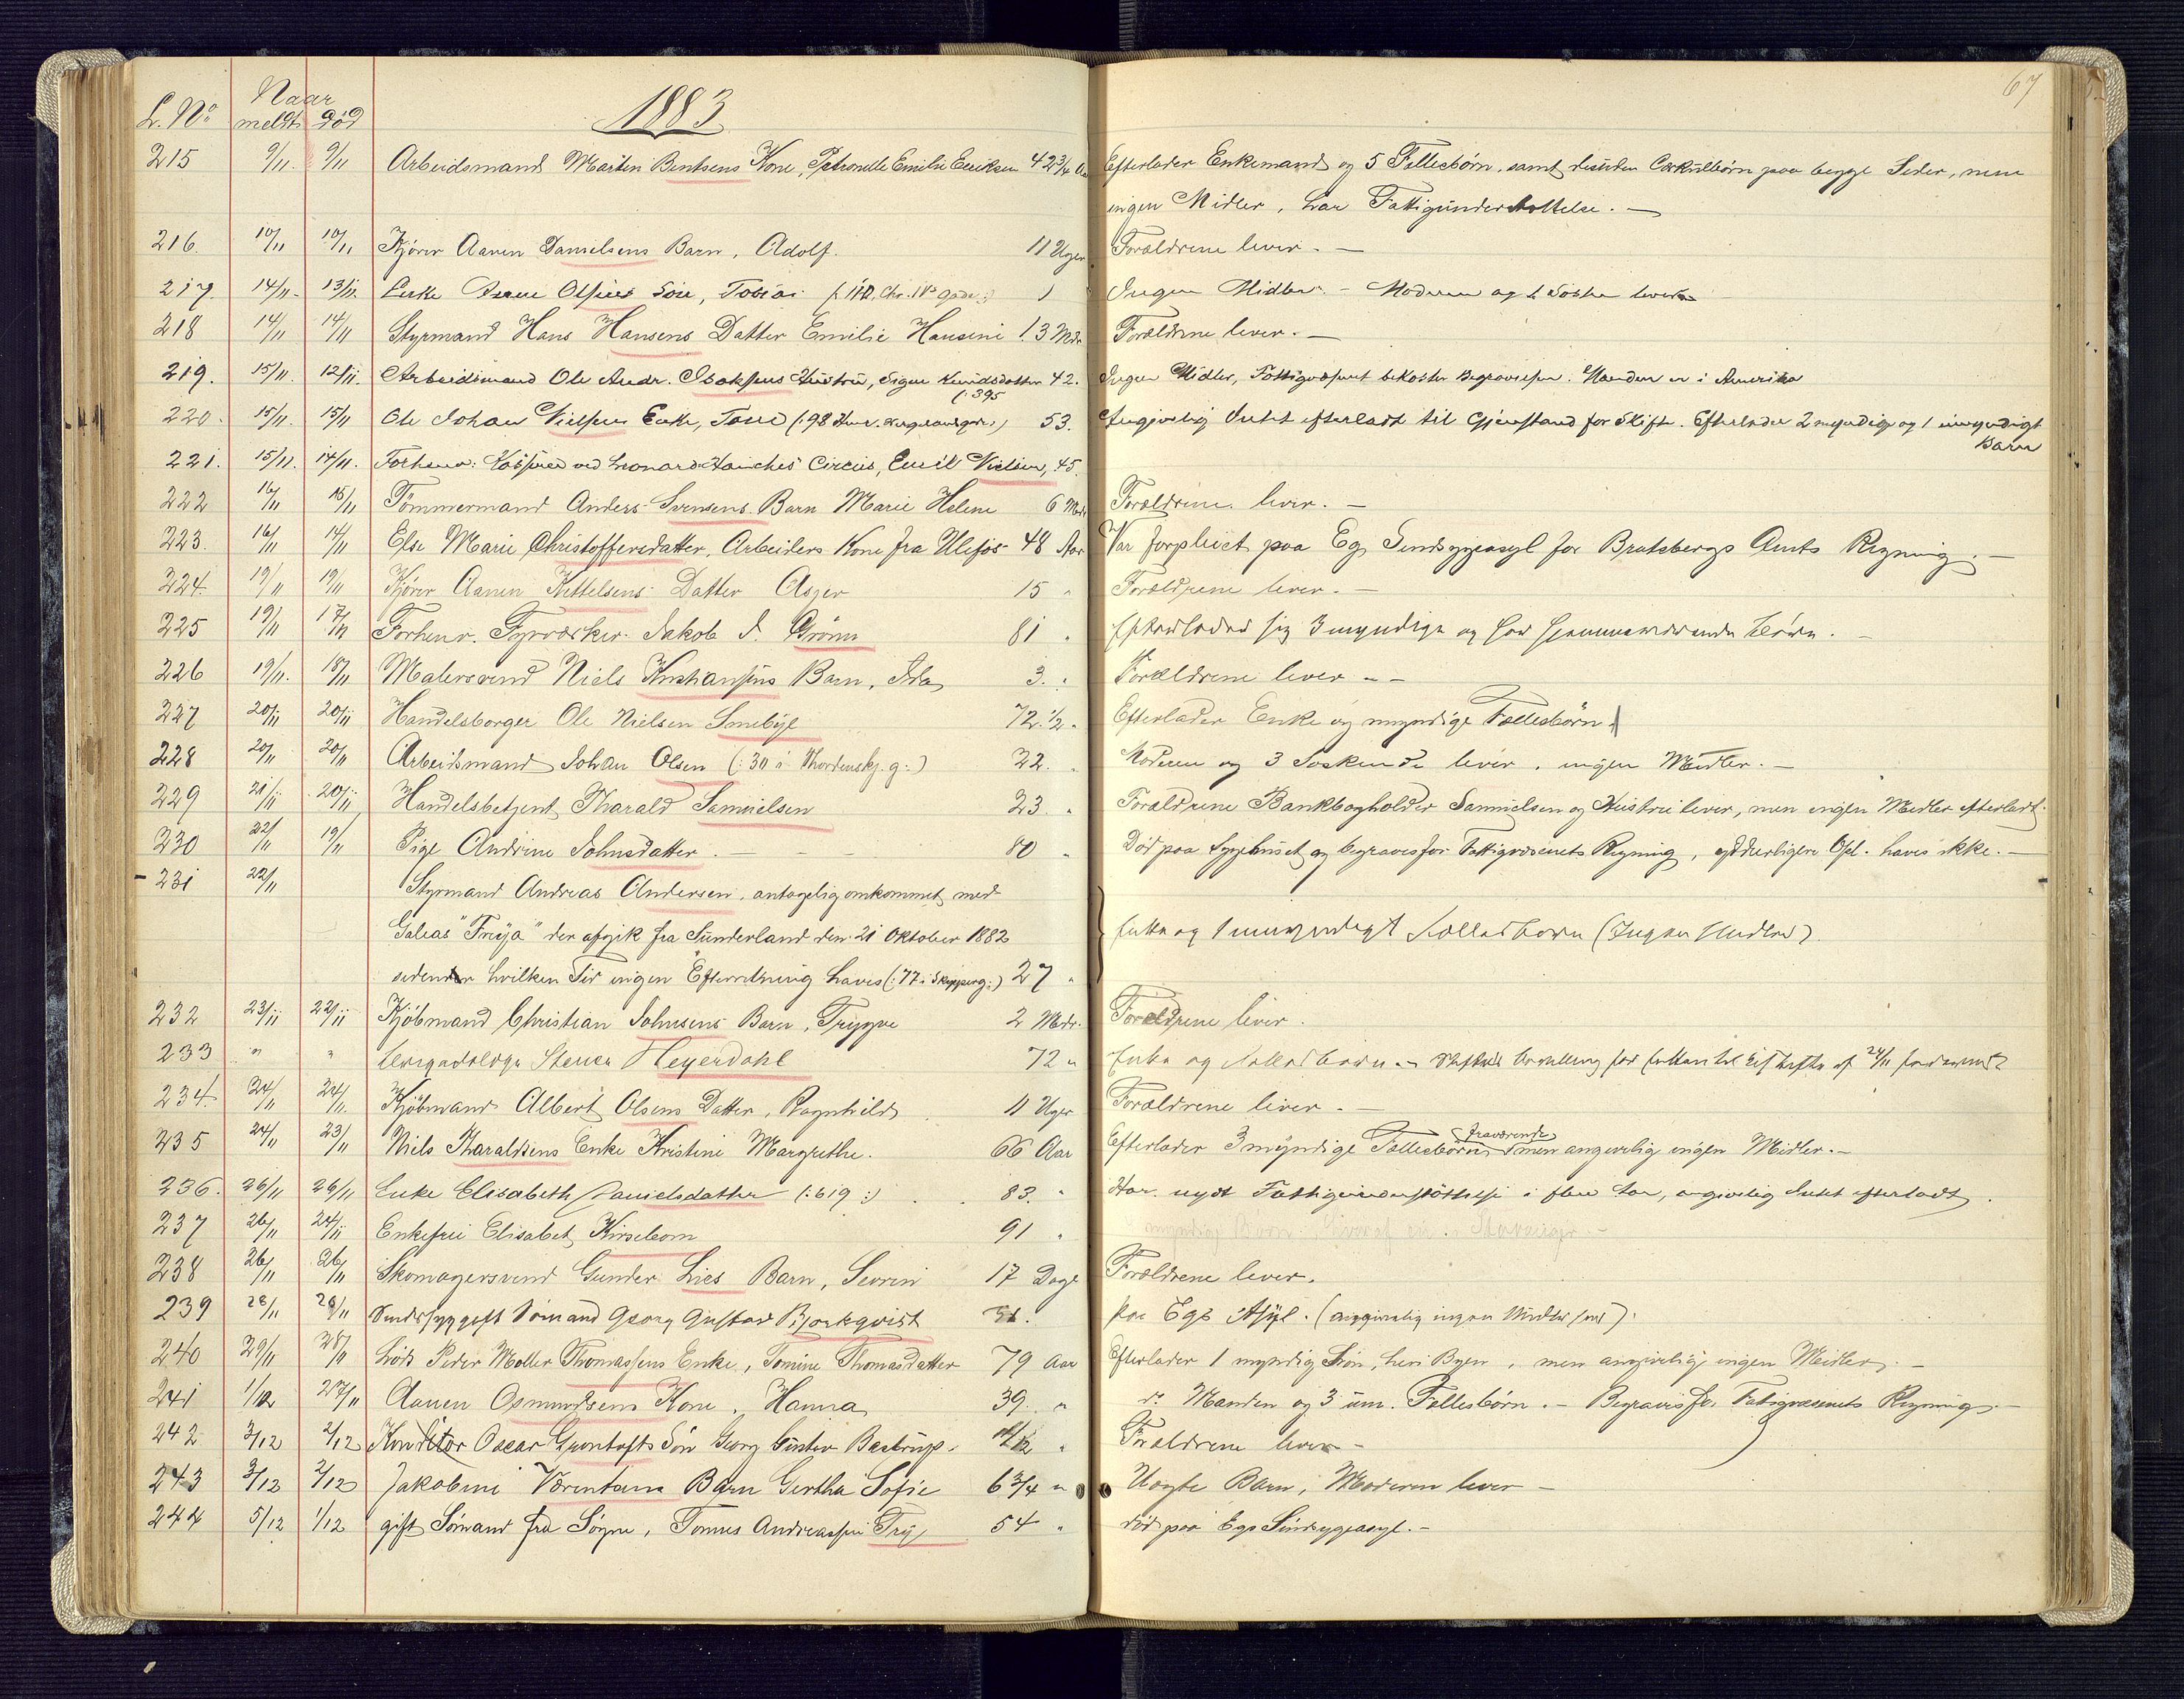 67
1883
L. No Naar
meldt død
215 9/11. 9/11 Arbeidsmand Martin Bentsens Kone, Petronelle Emilie Eeriksen 42 3/4 Aar Efterlader Enkemand og 5 Fellesbörn, samt desuden Særkulbörn paa begge Sider, men
ingen Midler, har Fattigunderstøttelse. —
216. 10/11 10/11 Kjörer Aanen Danielsens Barn, Adolf. 11 Uger Forældrene lever. —
217. 14/11. 13/11. Enke Olsens Søn, Tobias Ingen Midler. - Moderen og Søstre lever
218 14/11 14/11 Styrmand Hans Hansens Datter Emilie Hansine 1.3 Mdr Forældrene lever. —
219. 15/11. 12/11. Arbeidsmand Ole Andr. Isaksens Hustru, Signe Knudsdatter 42. Ingen Midler, Fattigvæsenet bekoster Begravelsen. Manden er i Amerika
(: 395
220. 15/11. 15/11 Ole Johan Nielsens Enke, Tone 53. Angivelig Intet efterladt til Gjenstand for Skifte. Efterlader 2 myndige og 1 umyndigt
Barn
221. 15/11. 14/11. Forhenv: Kasserer ved Leonard Circus, Emil Nielsen, 45.
222 16/11 15/11 Tömmermand Anders Svensens Barn Marie Helene 6 Mdr Forældrene lever. —
223. 16/11 14/11 Else Marie Christoffersdatter, Arbeiders Kone fra Ulefos 48 Aar Var forpleiet paa Eg Sindsygeasyl for Bratsbergs Amts Regning. —
224. 19/11 19/11 Kjörer Aanen Kittelsens Datter Asger 15 " Forældrene lever. —
225 19/11 17/11 Forhenv. Fyrvægter Jakob J. Grönn 81 " Efterlader sig 3 myndige og her Börn. —
226 19/11. 18/11 Malersvend Niels Kristiansens Barn, Ida 3. " Forældrene lever - -
227 20/11 20/11 Handelsborger Ole Nielsen Smebye 72. 1/2 " Efterlader Enke og myndige Fællesbörn.
228 20/11 20/11 Arbeidsmand Johan Olsen (: 30 i Thordenskj. g :) 22. " Moderen og 3 Søskende lever, ingen Midler. —
229 21/11 20/11 Handelsbetjent Tharald Samuelsen 23 " Forældrene Bankbogholder Samuelsen og Hustru lever, men ingen Midler efterladt.
230 22/11 19/11 Pige Andrine Johnsdatter. — — 80 " Död paa Sygehuset og begraves for Fattigvæsenets Regning, yderligere Opl. haves ikke. —
- 231 22/11 Styrmand Andreas Andersen, antagelig omkommet med
Galeas "Freya" der afgik fra Sunderland den 21 Oktober 1882 Enke og 1 umyndigt Fællesbarn (Ingen Midler).
siden hvilken Tid ingen Efterretning haves (: 77 i Skipperg :) 27 "
232 23/11 22/11 Kjöbmand Christian Johnsens Barn, Trygve 2 Mdr. Forældrene lever.
233 " " Steener Heyerdahl 72 " Enke og Fællesbørn. - Bevilling for Enken til af 24/11
234. 24/11 24/11. Kjöbmand Albert Olsens Datter, Ragnhild 11 Uger Forældrene lever. —
235 24/11 23/11 Niels Tharaldsens Enke Kristine Margrethe. 66 Aar Efterlader 3 myndige Fællesbörn fraværende men angivelig ingen Midler. —
236. 26/11 26/11 Enke Elisabeth Danielsdatter (: 619 :) 83. " Har nydt Fattigunderstøttelse i flere Aar, angivelig Intet efterladt.
237 26/11 24/11 Enkefru Elisabet Kirsebom 91 " myndige Börn
238 26/11 26/11 Skomagersvend Gunder Lies Barn, Sevrin 17 Dage Forældrene lever.
239 28/11 28/11 Sindssyg gift Sömand Georg Gustav Bjorkqvist paa Egs Asyl. (angivelig ingen Midler).
240 29/11 28/11 Lods Peder Møller Thomassens Enke, Tomine Thomasdatter 79 Aar Efterlader 1 myndig Søn, heri Byen, men angivelig ingen Midler. —
241 1/12 27/11 Aanen Osmundsens Kone, Hanna 39. " do Manden og 3 um. Fellesbörn. — Begraves for Fattigvæsenets Regning. —
242 3/12 2/12 Konditor Oscar Grontofts Søn Georg Gustav Bastrup. Forældrene lever -
243 3/12 2/12 Jakobine Börntsens Barn Gertha Sofie 6 3/4 " Uægte Barn, Moderen lever —
244 5/12 1/12 gift Sömand fra Søgne, Tomes Andreassen Try 54 " död paa Egs Sindsygeasyl. —